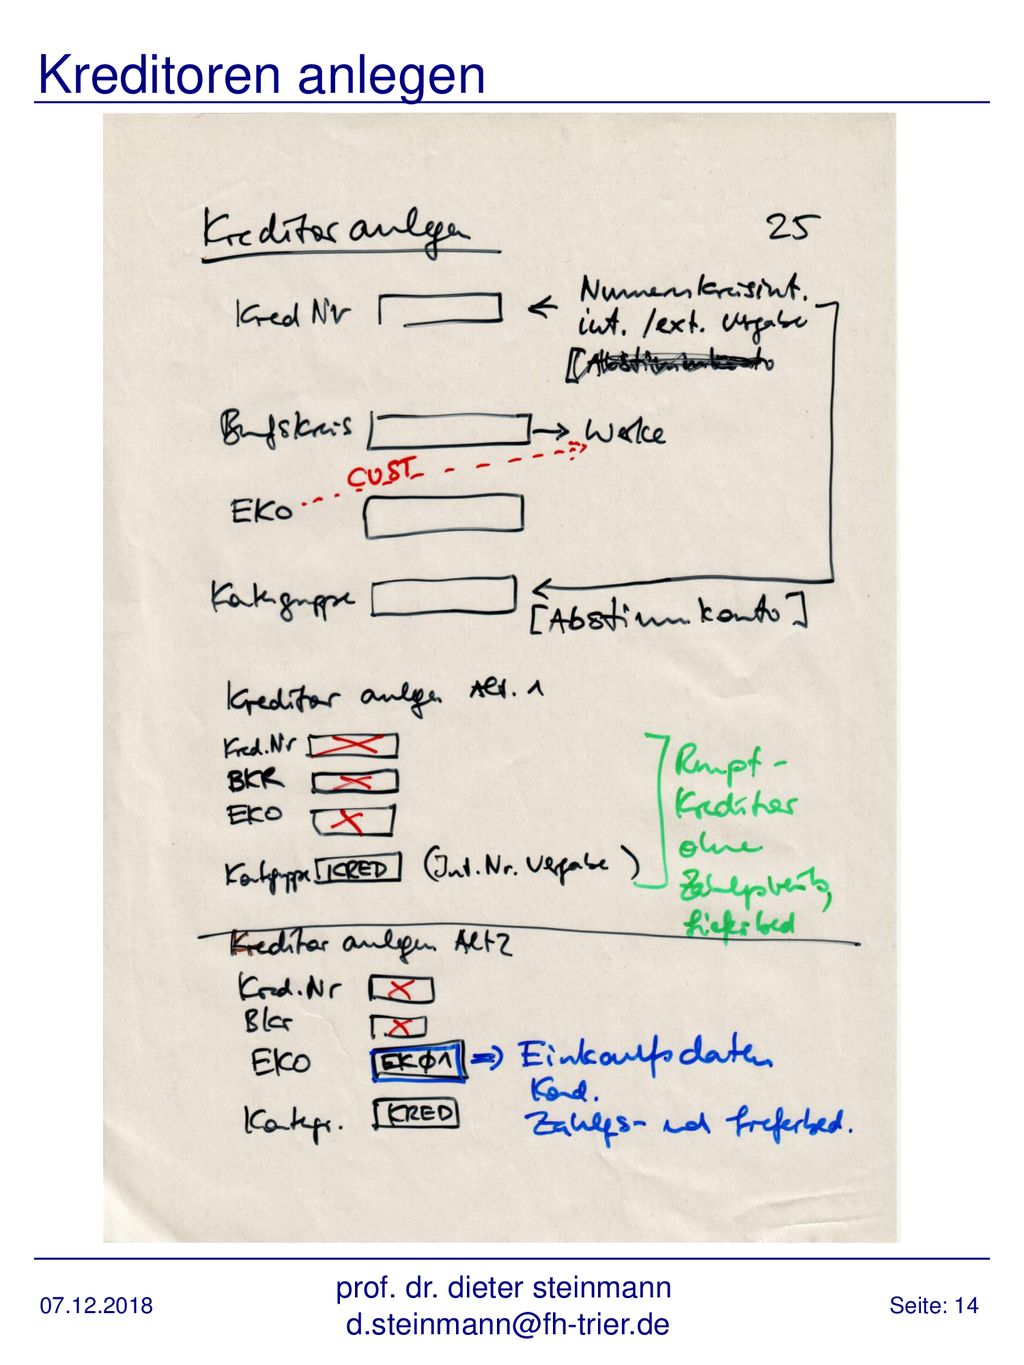 Kreditoren anlegen
Kreditor anlegen 25
Kred Nr ← Nummernkreisint.
int. /ext. Vergabe
[Abstimmkonto
Buchgskreis → Werke
CUST
EKO
Kontengruppe
[Abstimmkonto]
Kreditor anlegen Alt. 1
Kred.Nr X
BKR X
EKO X
Kontgruppe KRED (Int. Nr. Vergabe)
Rumpf-
Kreditor
ohne
Lieferbed
Kreditor anlegen Alt 2
Kred. Nr X
Bkr X
EKO EKØ1 => Einkaufsdaten
Kond.
Kontegr. KRED Zahlgs- und Lieferbed.
07.12.2018
prof. dr. dieter steinmann
d.steinmann@fh-trier.de
Seite: 14